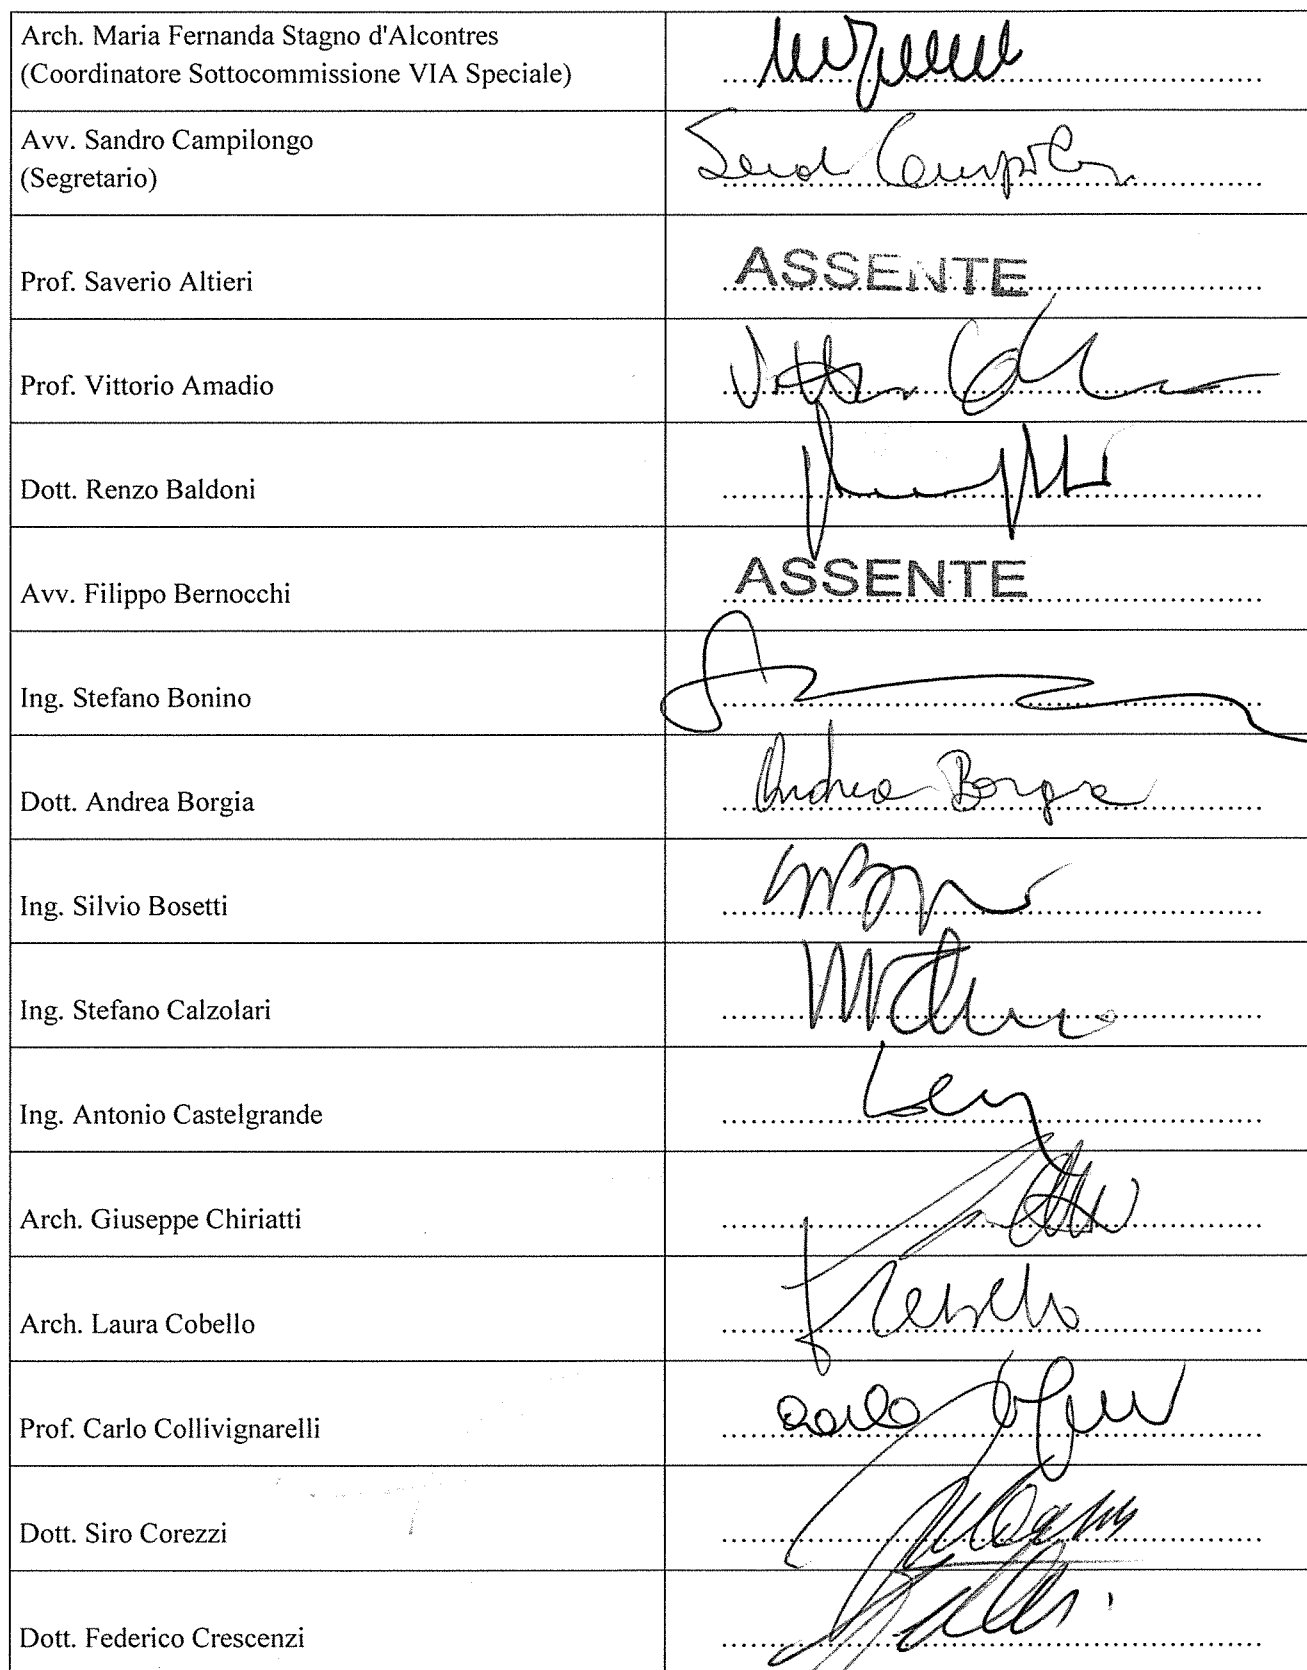 Arch. Maria Fernanda Stagno d'Alcontres
(Coordinatore Sottocommissione VIA Speciale)
Avv. Sandro Campilongo
(Segretario)
Prof. Saverio Altieri
ASSENTE
Prof. Vittorio Amadio
Dott. Renzo Baldoni
Avv. Filippo Bernocchi
ASSENTE
Ing. Stefano Bonino
Dott. Andrea Borgia
Andrea Borgia
Ing. Silvio Bosetti
Ing. Stefano Calzolari
Ing. Antonio Castelgrande
Arch. Giuseppe Chiriatti
Arch. Laura Cobello
Prof. Carlo Collivignarelli
Dott. Siro Corezzi
Dott. Federico Crescenzi